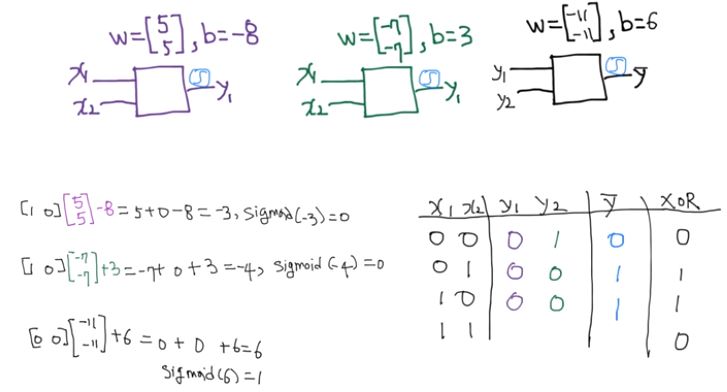 w=[5 5], b=-8
x1
x2
S
y1
w=[-7 -7], b=3
x1
x2
S
y1
w=[-11 -11], b=6
y1
y2
S
y̅
[1 0][5 5]-8=5+0-8=-3, sigmoid(-3)=0
[1 0][-7 -7]+3=-7+0+3=-4, sigmoid(-4)=0
[0 0][-11 -11]+6=0+0+6=6
sigmoid(6)=1
x1 x2 y1 y2 y̅ XOR
0 0 0 1 0 0
0 1 0 0 1 1
1 0 0 0 1 1
1 1 0